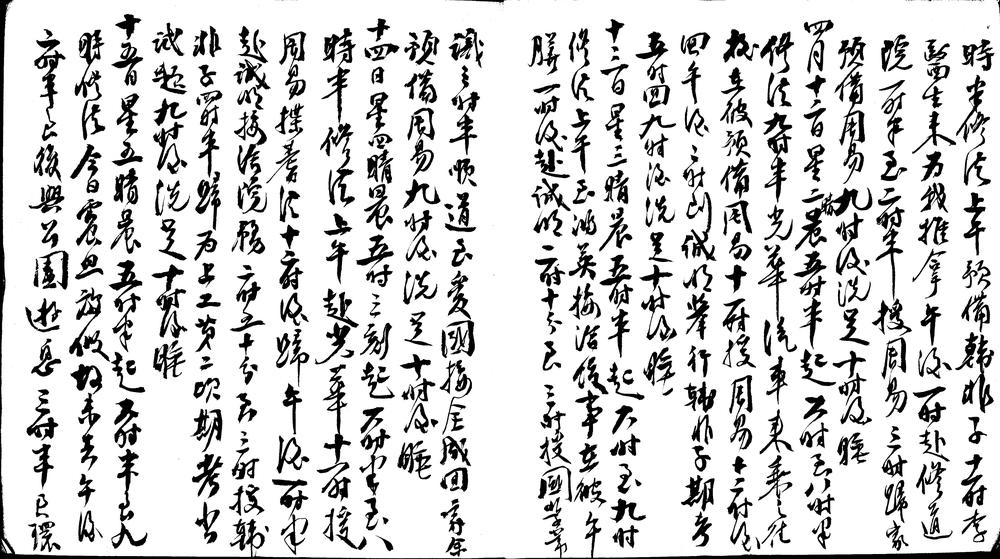 時半修法上午預備韓非子十一時李
醫生來為我推拿午後一時赴修道
院一時半至二時半授周易三時歸家
預備周易九時後洗足十時後睡
四月十二日星二晴晨五時半起六時至八時半
修法九時半光華汽車來乘之往
校在彼預備周易十一時授周易十二時後
回午後二時到誠明舉行韓非子期考
五時回九時後洗足十時後睡
十三日星三晴晨五時半起六時至九時
修法上午至鴻英接洽後事在彼午
膳一時後赴誠明二時十分至三時授國學常
識三時半順道至愛國接金咸回寄余
預備周易九時後洗足十時後睡
十四日星四晴晨五時三刻起六時半至八
時半修法上午赴光華十一時授
周易揲蓍法十二時後歸午後一時半
赴誠明接洽院務二時五十分至三時授韓
非子四時半歸為上工第二次期考出
試題九時後洗足十時後睡
十五日星五晴晨五時半起六時半至九
時修法今日震旦放假故未去午後
二時半至復興公園遊息三時半至環